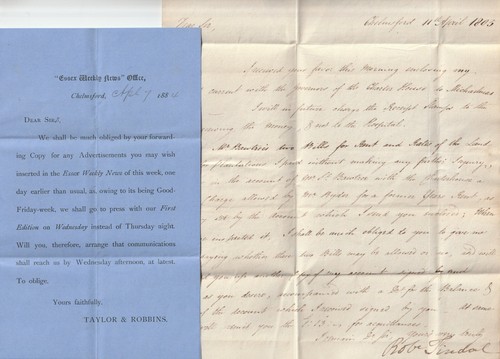 "Essex Weekly News" Office,
Chelmsford, Apl 7 188
DEAR SIR,
We shall be much obliged by your forward-
ing Copy for any Advertisements you may wish
inserted in the Essex Weekly News of this week, one
day earlier than usual, as, owing to its being Good-
Friday-week, we shall go to press with our First
Edition on Wednesday instead of Thursday night.
Will you, therefore, arrange that communications
shall reach us by Wednesday afternoon, at latest.
To oblige,
Yours faithfully,
TAYLOR & ROBBINS.
Dear Sir,
Chelmsford 11th April 1805
I received your favor this morning enclosing my
current with the governors of the Charter House to Michaelmas
I will in future charge the Receipt Stamps to the
the money, & not to the Hospital.
Mr Bawtree's two Bills for Rent and Rates of the Land,
Plantations I paid without making any further Inquiry,
the account of Mr St Bawtree with the
charge allowed by Mr Ryder for a former Years Rent, as
by the account which I send you
I shall be much obliged to you to give me
whether these two Bills may be allowed or no, and will
you another Copy of my account signed by
as you desire, accompanied with a for the Balance &
the account which I received signed by you. at same
will send you the for
I remain Dr Sir yours very truly
Robt Tindal